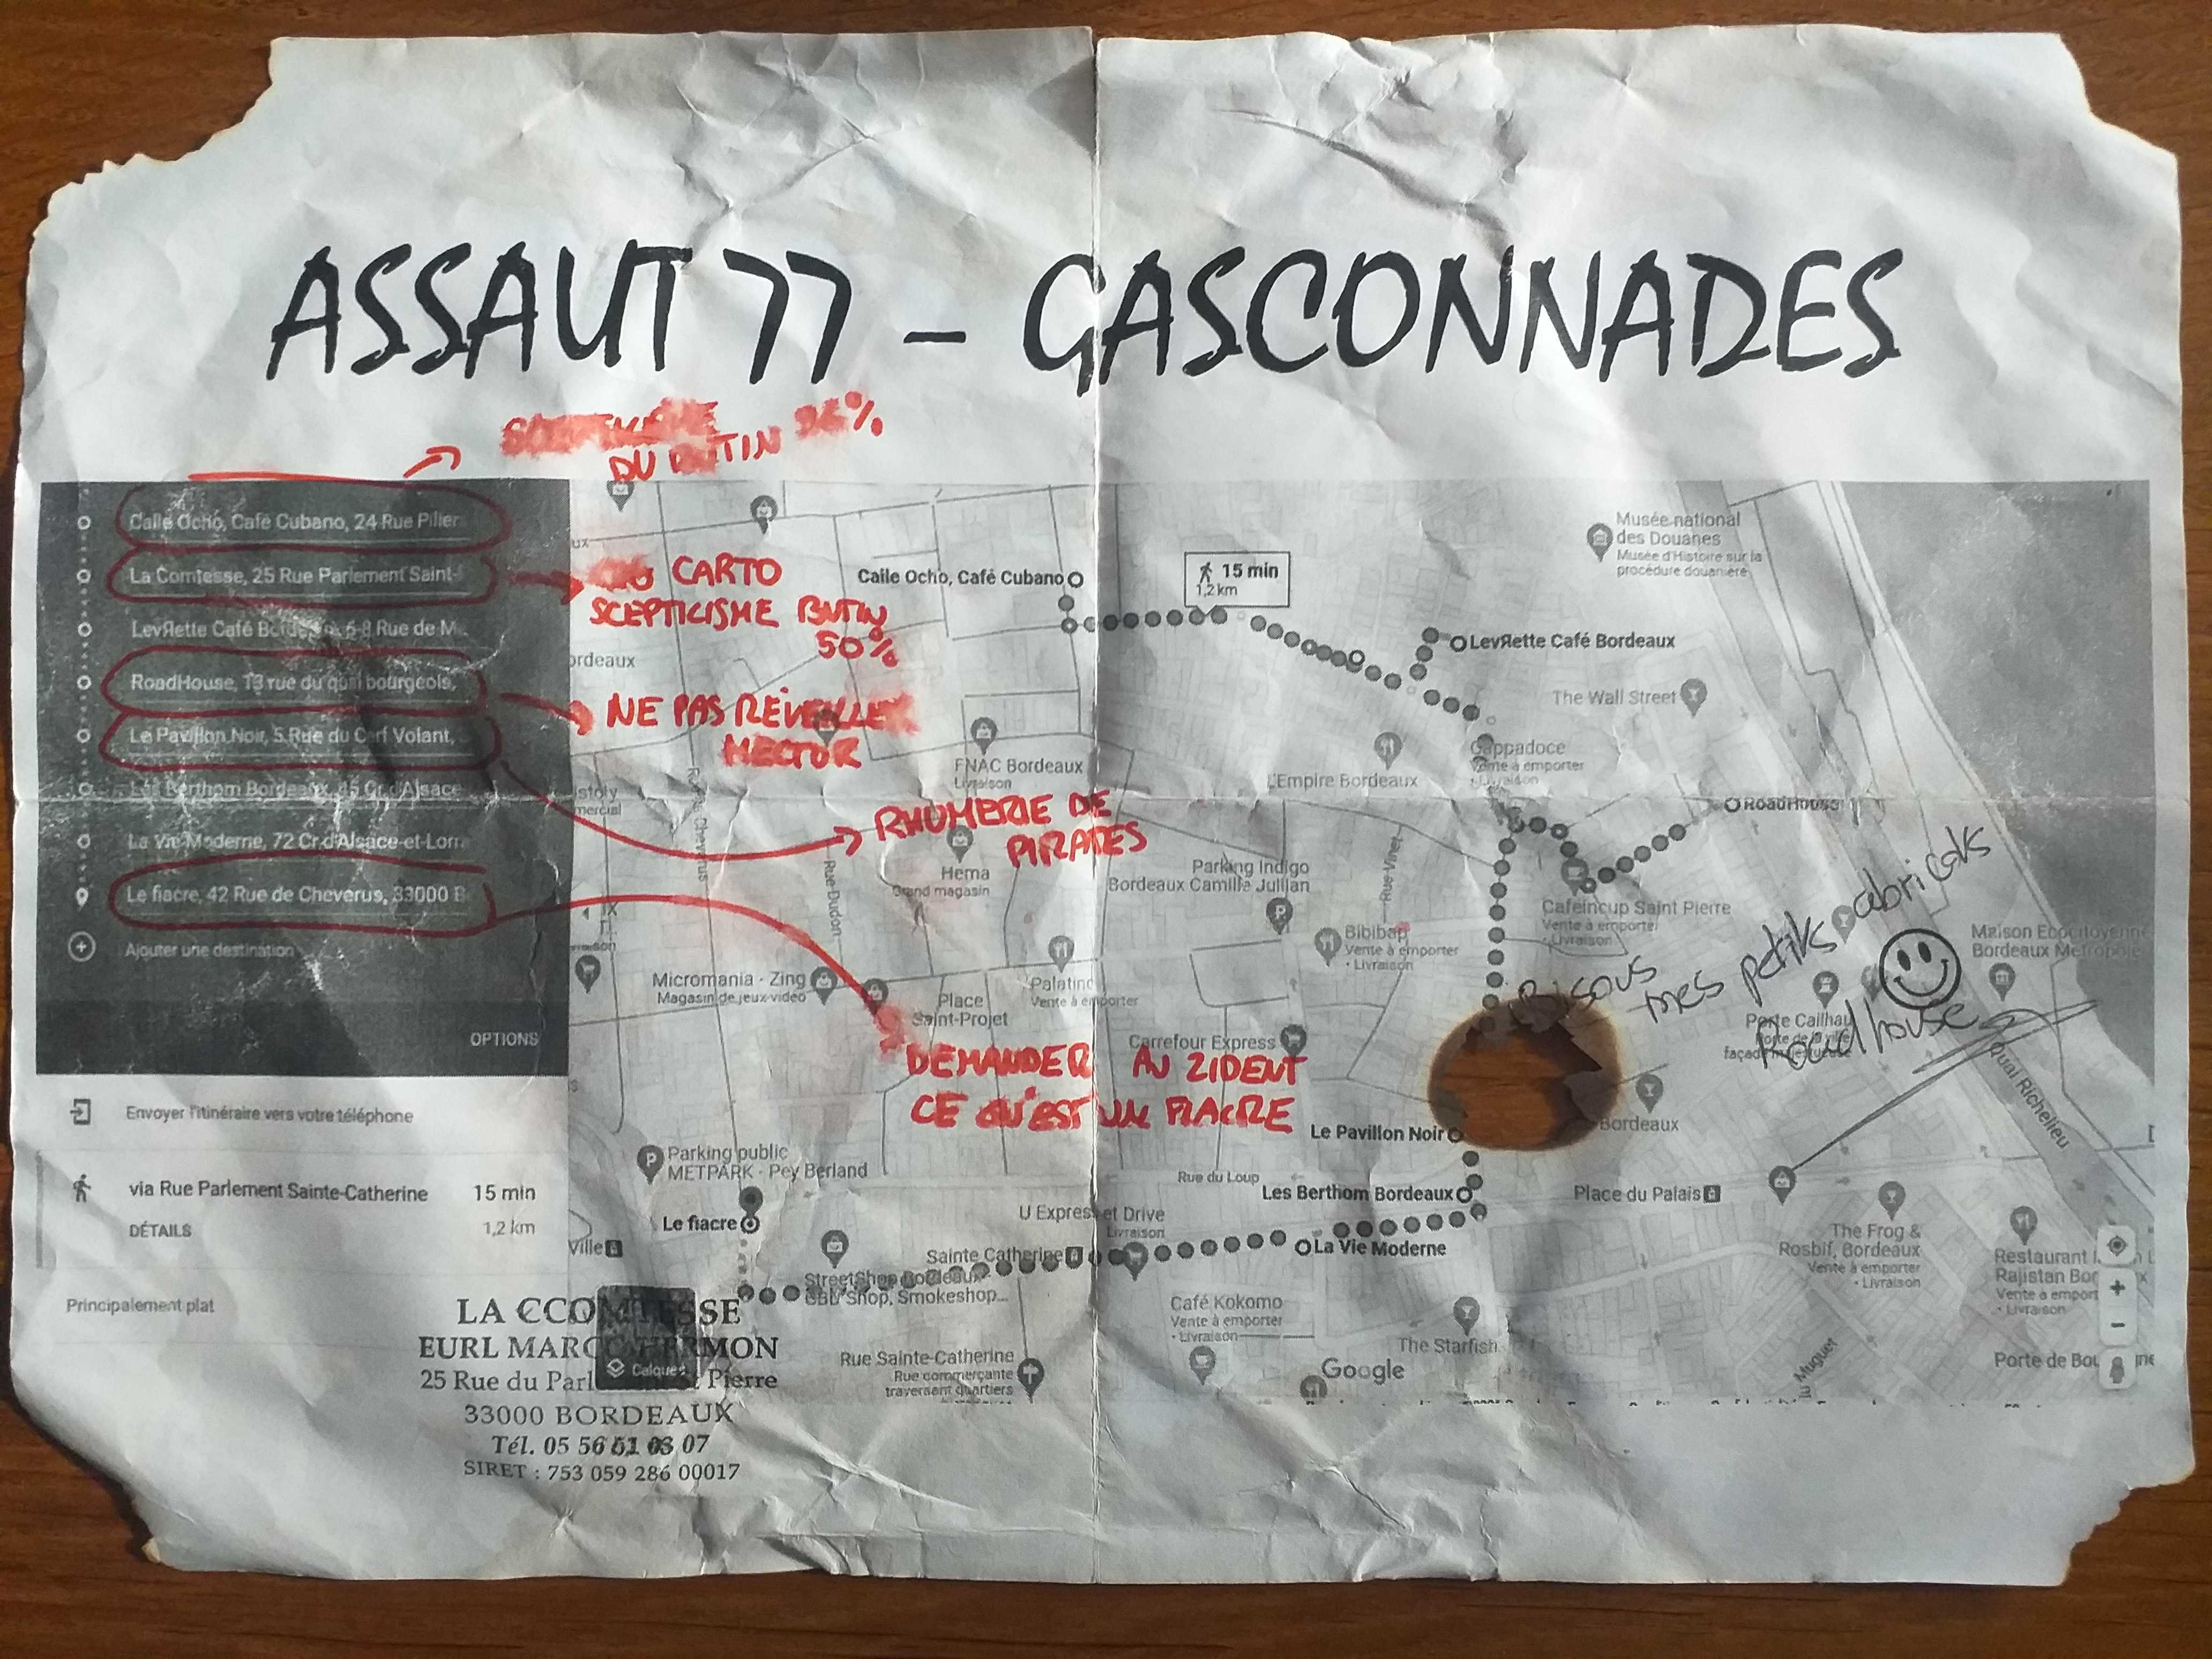 ASSAUT 77 - GASCONNADES
DU BUTIN
Calle Ocho, Café Cubano, 24 Rue Pilier
La Comtesse, 25 Rue Parlement Saint-
LevЯette Café 6-8 Rue de M
RoadHouse, 13 rue du quai bourgeois,
Le Pavillon Noir, 5 Rue du Cerf Volant,
Les Berthom Bordeaux, 45 Cr d'Alsace
La Vie Moderne, 72 Cr d'Alsace-et-Lorr
Le fiacre, 42 Rue de Cheverus, 33000 B
Ajouter une destination
OPTIONS
Envoyer l'itinéraire vers votre téléphone
via Rue Parlement Sainte-Catherine 15 min
DÉTAILS 1,2 km
Principalement plat
CARTO
SCEPTICISME BUTIN
50%
NE PAS RÉVEILLER
HECTOR
RHUMERIE DE
PIRATES
DEMANDER AU ZIDENT
CE QU'EST UN FIACRE
Calle Ocho, Café Cubano
15 min
1,2 km
Musée national
des Douanes
Musée d'Histoire sur la
procédure douanière
LevЯette Café Bordeaux
The Wall Street
Cappadoce
Vente à emporter
Livraison
L'Empire Bordeaux
FNAC Bordeaux
Livraison
RoadHouse
Hema
Grand magasin
Rue Dudon
Rue Vinet
Parking Indigo
Bordeaux Camille Jullian
Cafeincup Saint Pierre
Vente à emporter
Livraison
Bibibap
Vente à emporter
• Livraison
Bisous
mes petits abricots
Roadhouse
Maison Ecocitoyenne
Bordeaux Métropole
Micromania - Zing
Magasin de jeux vidéo
Place
Saint-Projet
Palatino
Vente à emporter
Carrefour Express
Porte Cailhau
Porte de la ville
Quai Richelieu
Le Pavillon Noir
Bordeaux
Parking public
METPARK - Pey Berland
Rue du Loup
Les Berthom Bordeaux
Place du Palais
Le fiacre
U Express et Drive
Livraison
The Frog &
Rosbif, Bordeaux
Vente à emporter
• Livraison
Ville
Sainte Catherine
La Vie Moderne
StreetShop Bordeaux-
CBD Shop, Smokeshop...
Restaurant
Rajistan Bor
Vente à emport
• Livraison
Café Kokomo
Vente à emporter
• Livraison
The Starfish
Rue Sainte-Catherine
Rue commerçante
traversant quartiers
Google
Porte de Bou
Calques
LA CCOMTESSE
EURL MARC HERMON
25 Rue du Parl St Pierre
33000 BORDEAUX
Tél. 05 56 51 03 07
SIRET : 753 059 286 00017